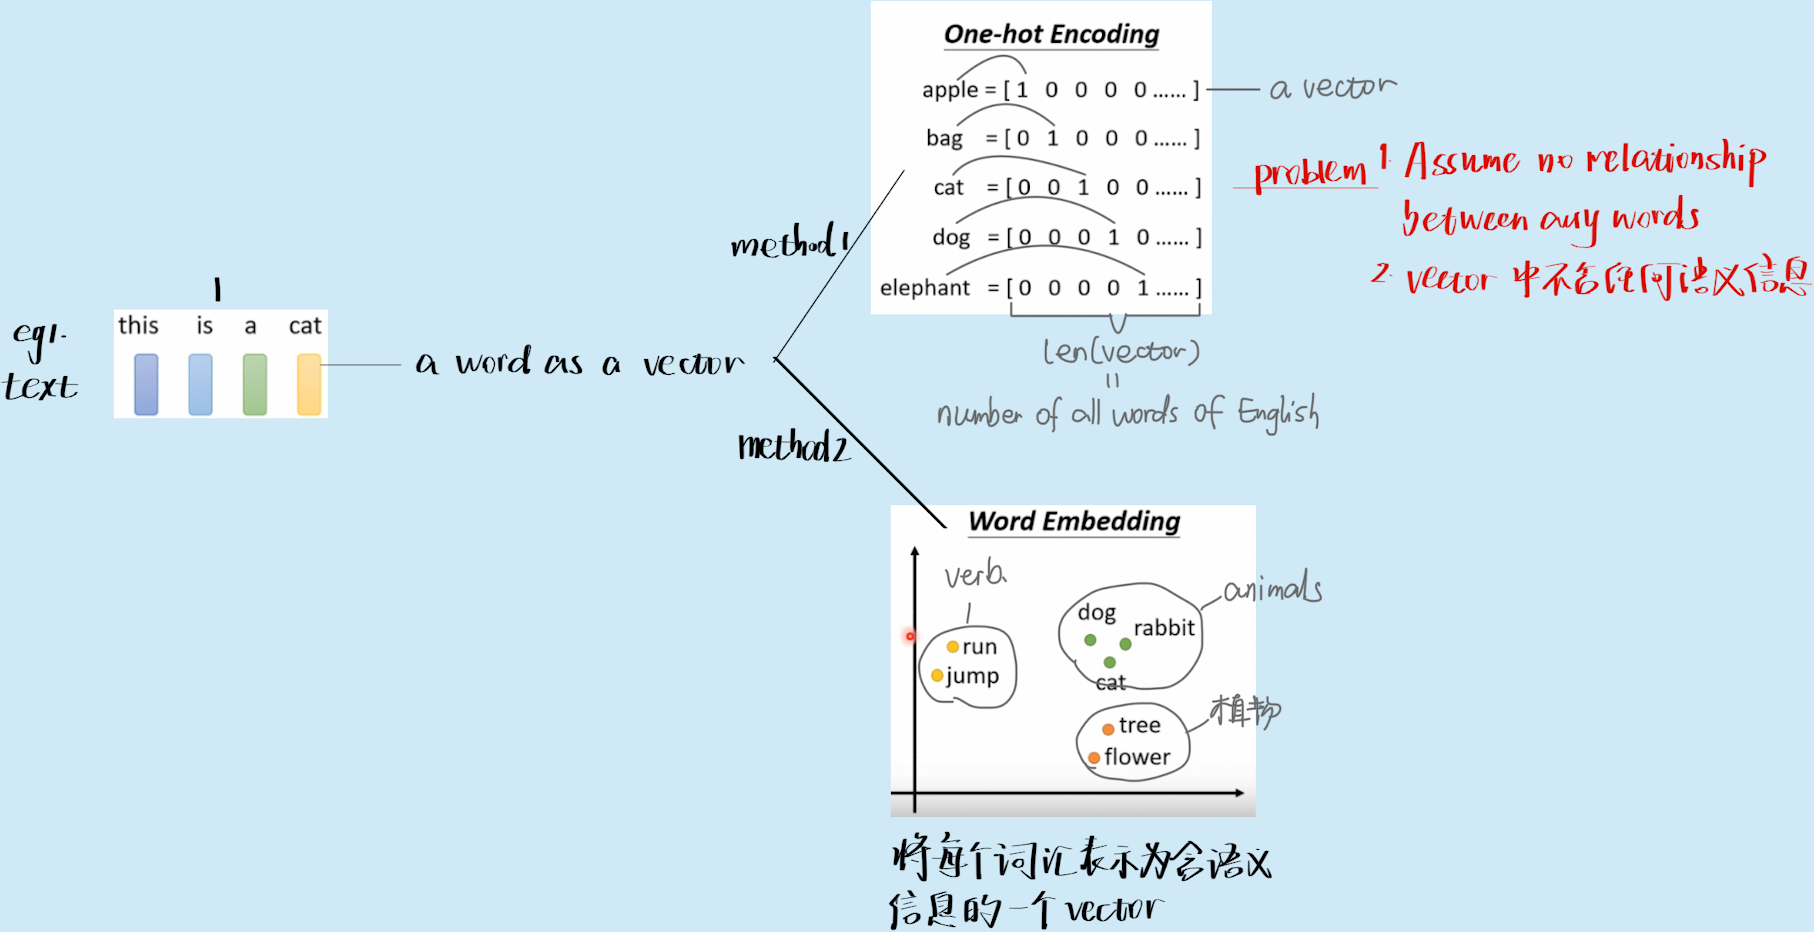 1
eg1.
text
this is a cat
a word as a vector
method1
method2
One-hot Encoding
apple = [ 1 0 0 0 0 ...... ]
a vector
bag = [ 0 1 0 0 0 ...... ]
cat = [ 0 0 1 0 0 ...... ]
dog = [ 0 0 0 1 0 ...... ]
elephant = [ 0 0 0 0 1 ...... ]
len(vector)
=
number of all words of English
problem
1. Assume no relationship
between any words
2. vector 中不含任何语义信息
Word Embedding
verb.
run
jump
animals
dog
rabbit
cat
植物
tree
flower
将每个词汇表示为含语义
信息的一个vector